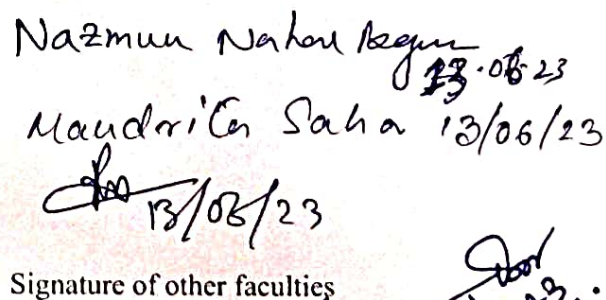 Nazmun Nahar Begum
13.06.23
Mandrita Saha 13/06/23
13/06/23
Signature of other faculties